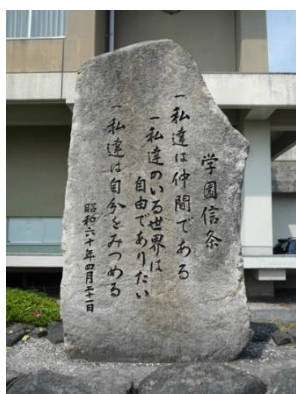 学園信条
一私達は仲間である
一私達のいる世界は
自由でありたい
一私達は自分をみつめる
昭和六十年四月二十一日